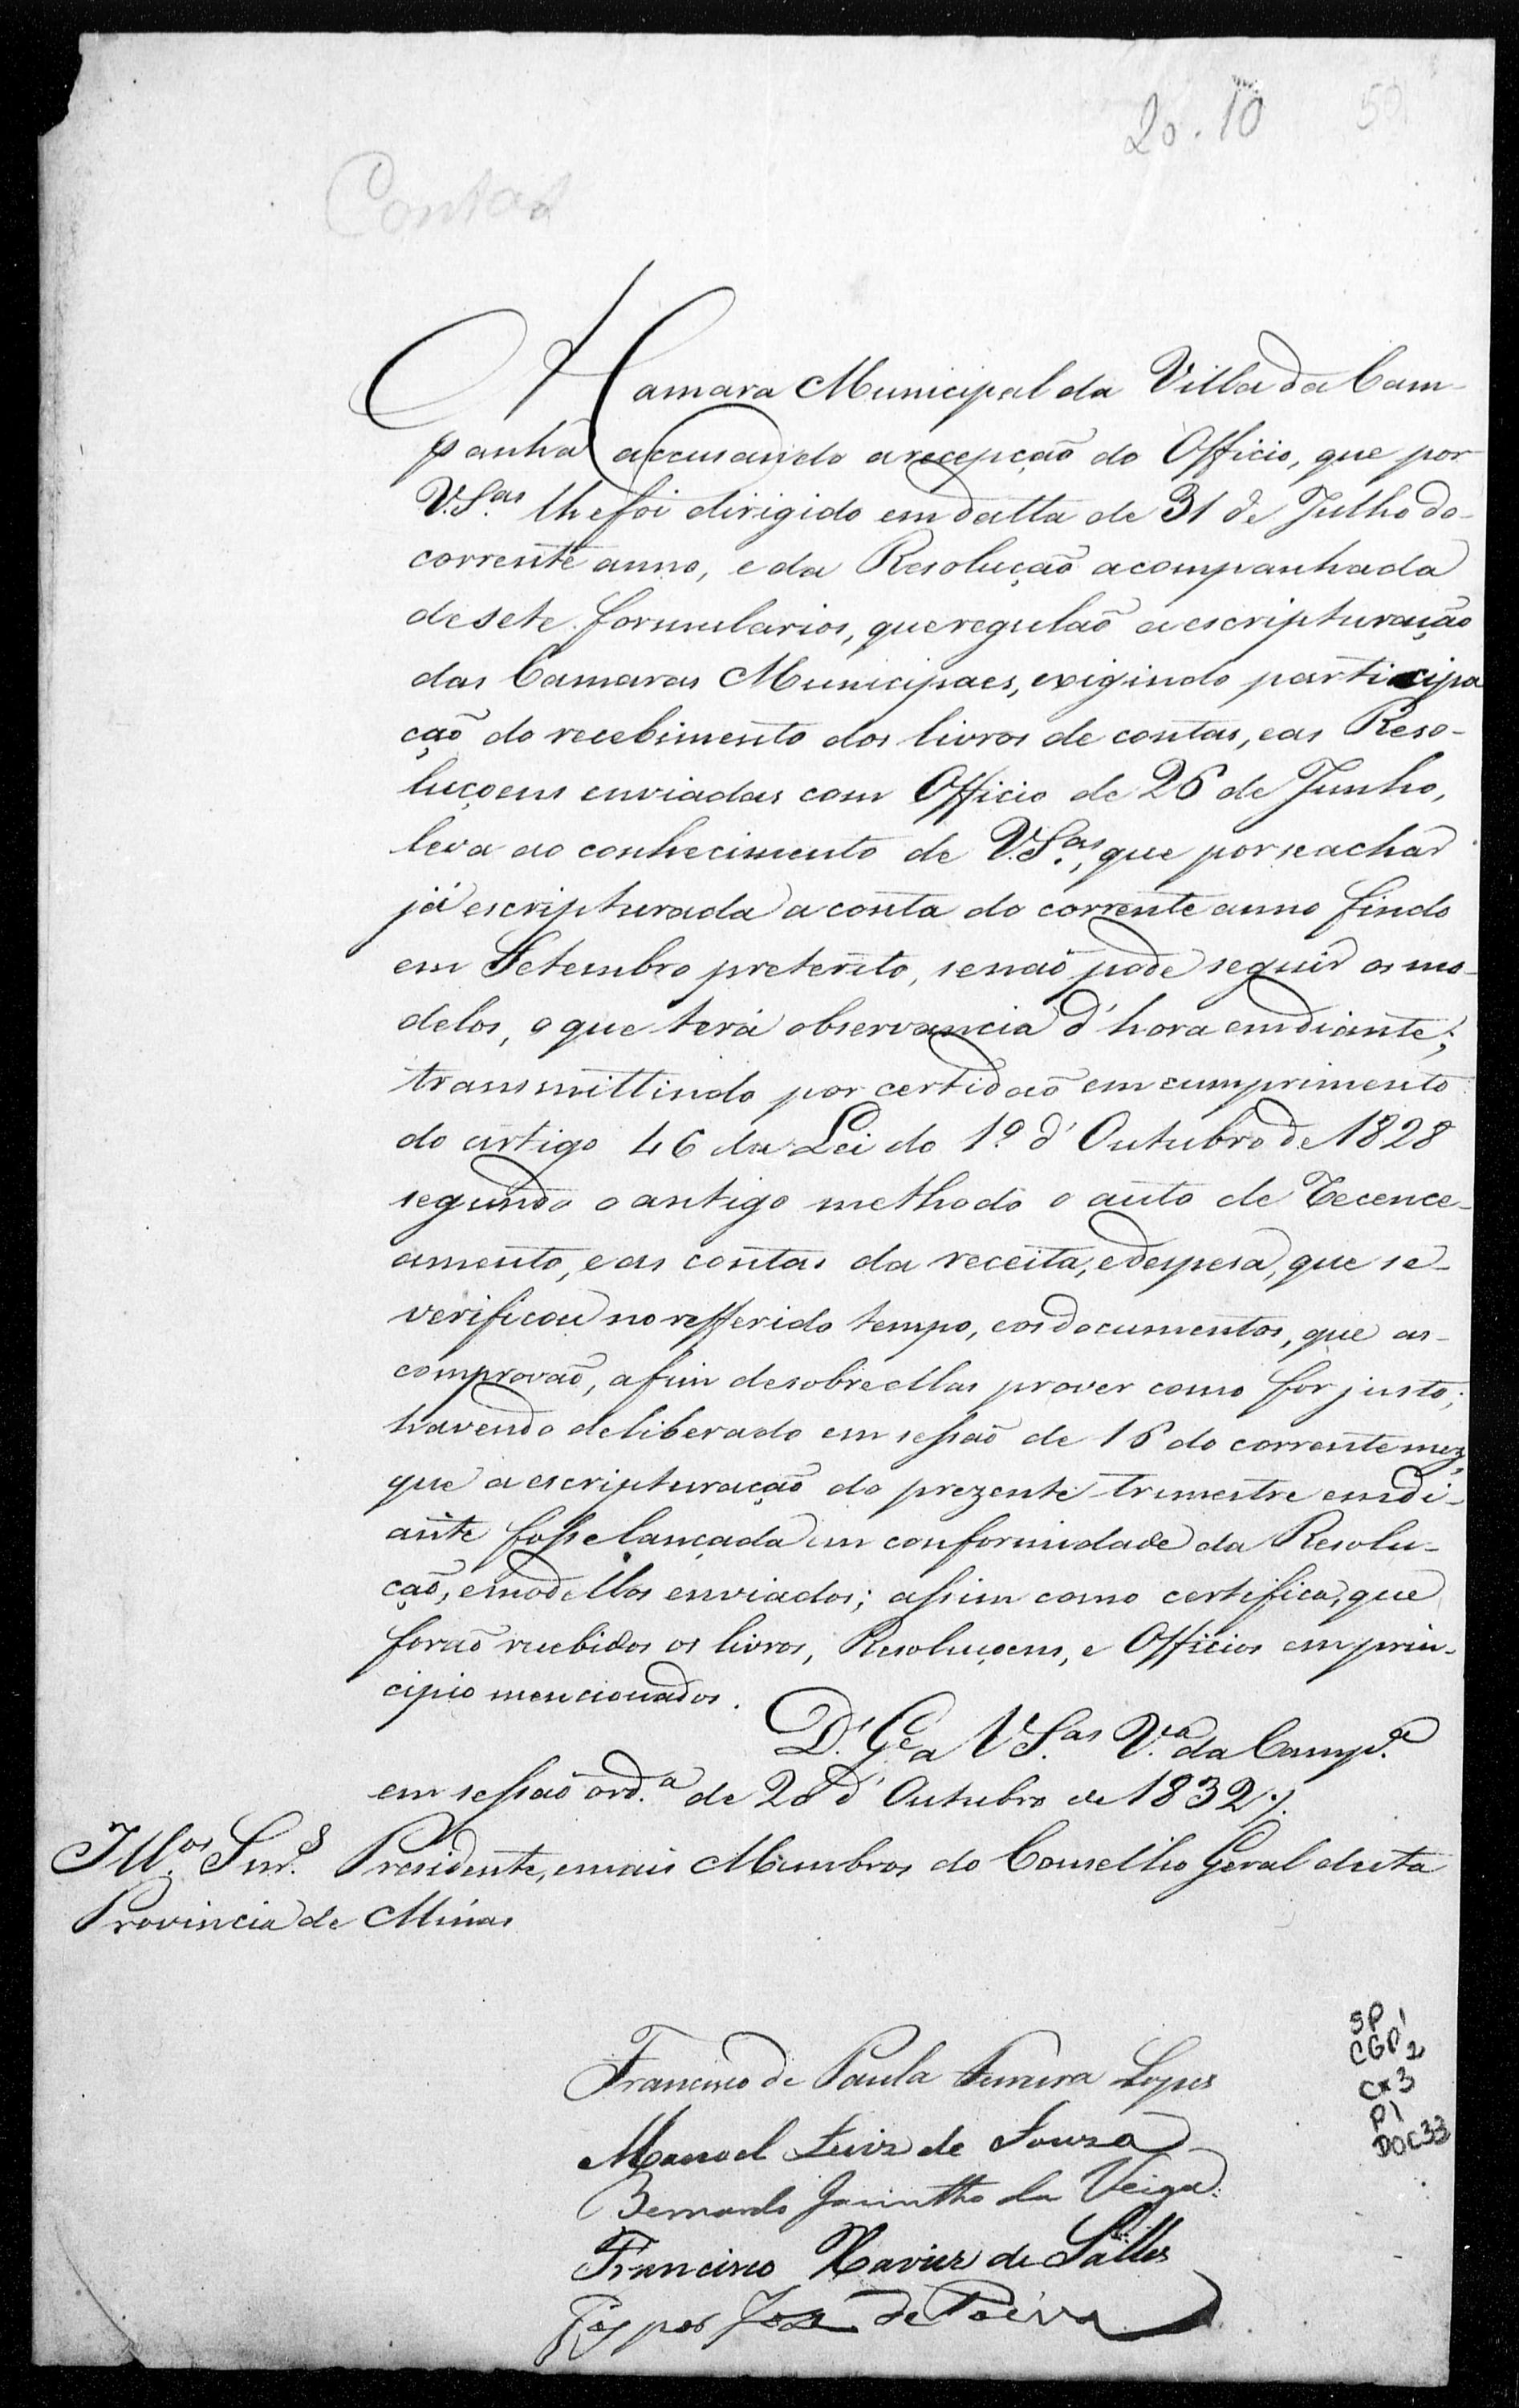 20. 10
50
Contas
A Camara Municipal da Villa da Cam-
panha accusando a recepção do Officio, que por
V.S.as lhe foi dirigido em datta de 31 de Julho do
corrente anno, e da Resolução acompanhada
de sete formularios, que regulaõ a escripturação
das Camaras Municipaes, exigindo participa
ção do recebimento dos livros de contas, e as Reso-
luçoens enviadas com Officio de 26 de Junho,
leva ao conhecimento de V.S.as, que por se achar
já escripturada a conta do corrente anno findo
em Setembro preterito, se naõ pode seguir os mo-
delos, o que terá observancia d'hora em diante;
transmittindo por certidaõ em cumprimento
do artigo 46 da Lei do 1º d'Outubro de 1828
segundo o antigo methodo o auto de Tecence-
amento, e as contas da receita, e despesa, que se
verificou no refferido tempo, e os documentos, que as
comprovaõ, afim de sobre ellas prover como for justo;
havendo deliberado em sessaõ de 16 do corrente mez,
que a escripturaçaõ do prezente trimestre em di-
ante fosse lançada em conformidade da Resolu-
çaõ, e modellos enviados; assim como certifica, que
foraõ recebidos os livros, Resoluçoens, e Officios em prin-
cipio mencionados.
D.s G.e a V S.as V.a da Camp.a
em sessaõ ord.a de 20 d'Outubro de 1832
Ill.os Snr.s Presidente, e mais Membros do Conselho Geral desta
Provincia de Minas
Francisco de Paula Ferreira Lopes
Manoel Luis de Souza
Bernardo Jacintho da Veiga
Francisco Xavier de Salles
Gaspar José de Paiva
SP
CGP 1 2
CX 3
P1
DOC 33